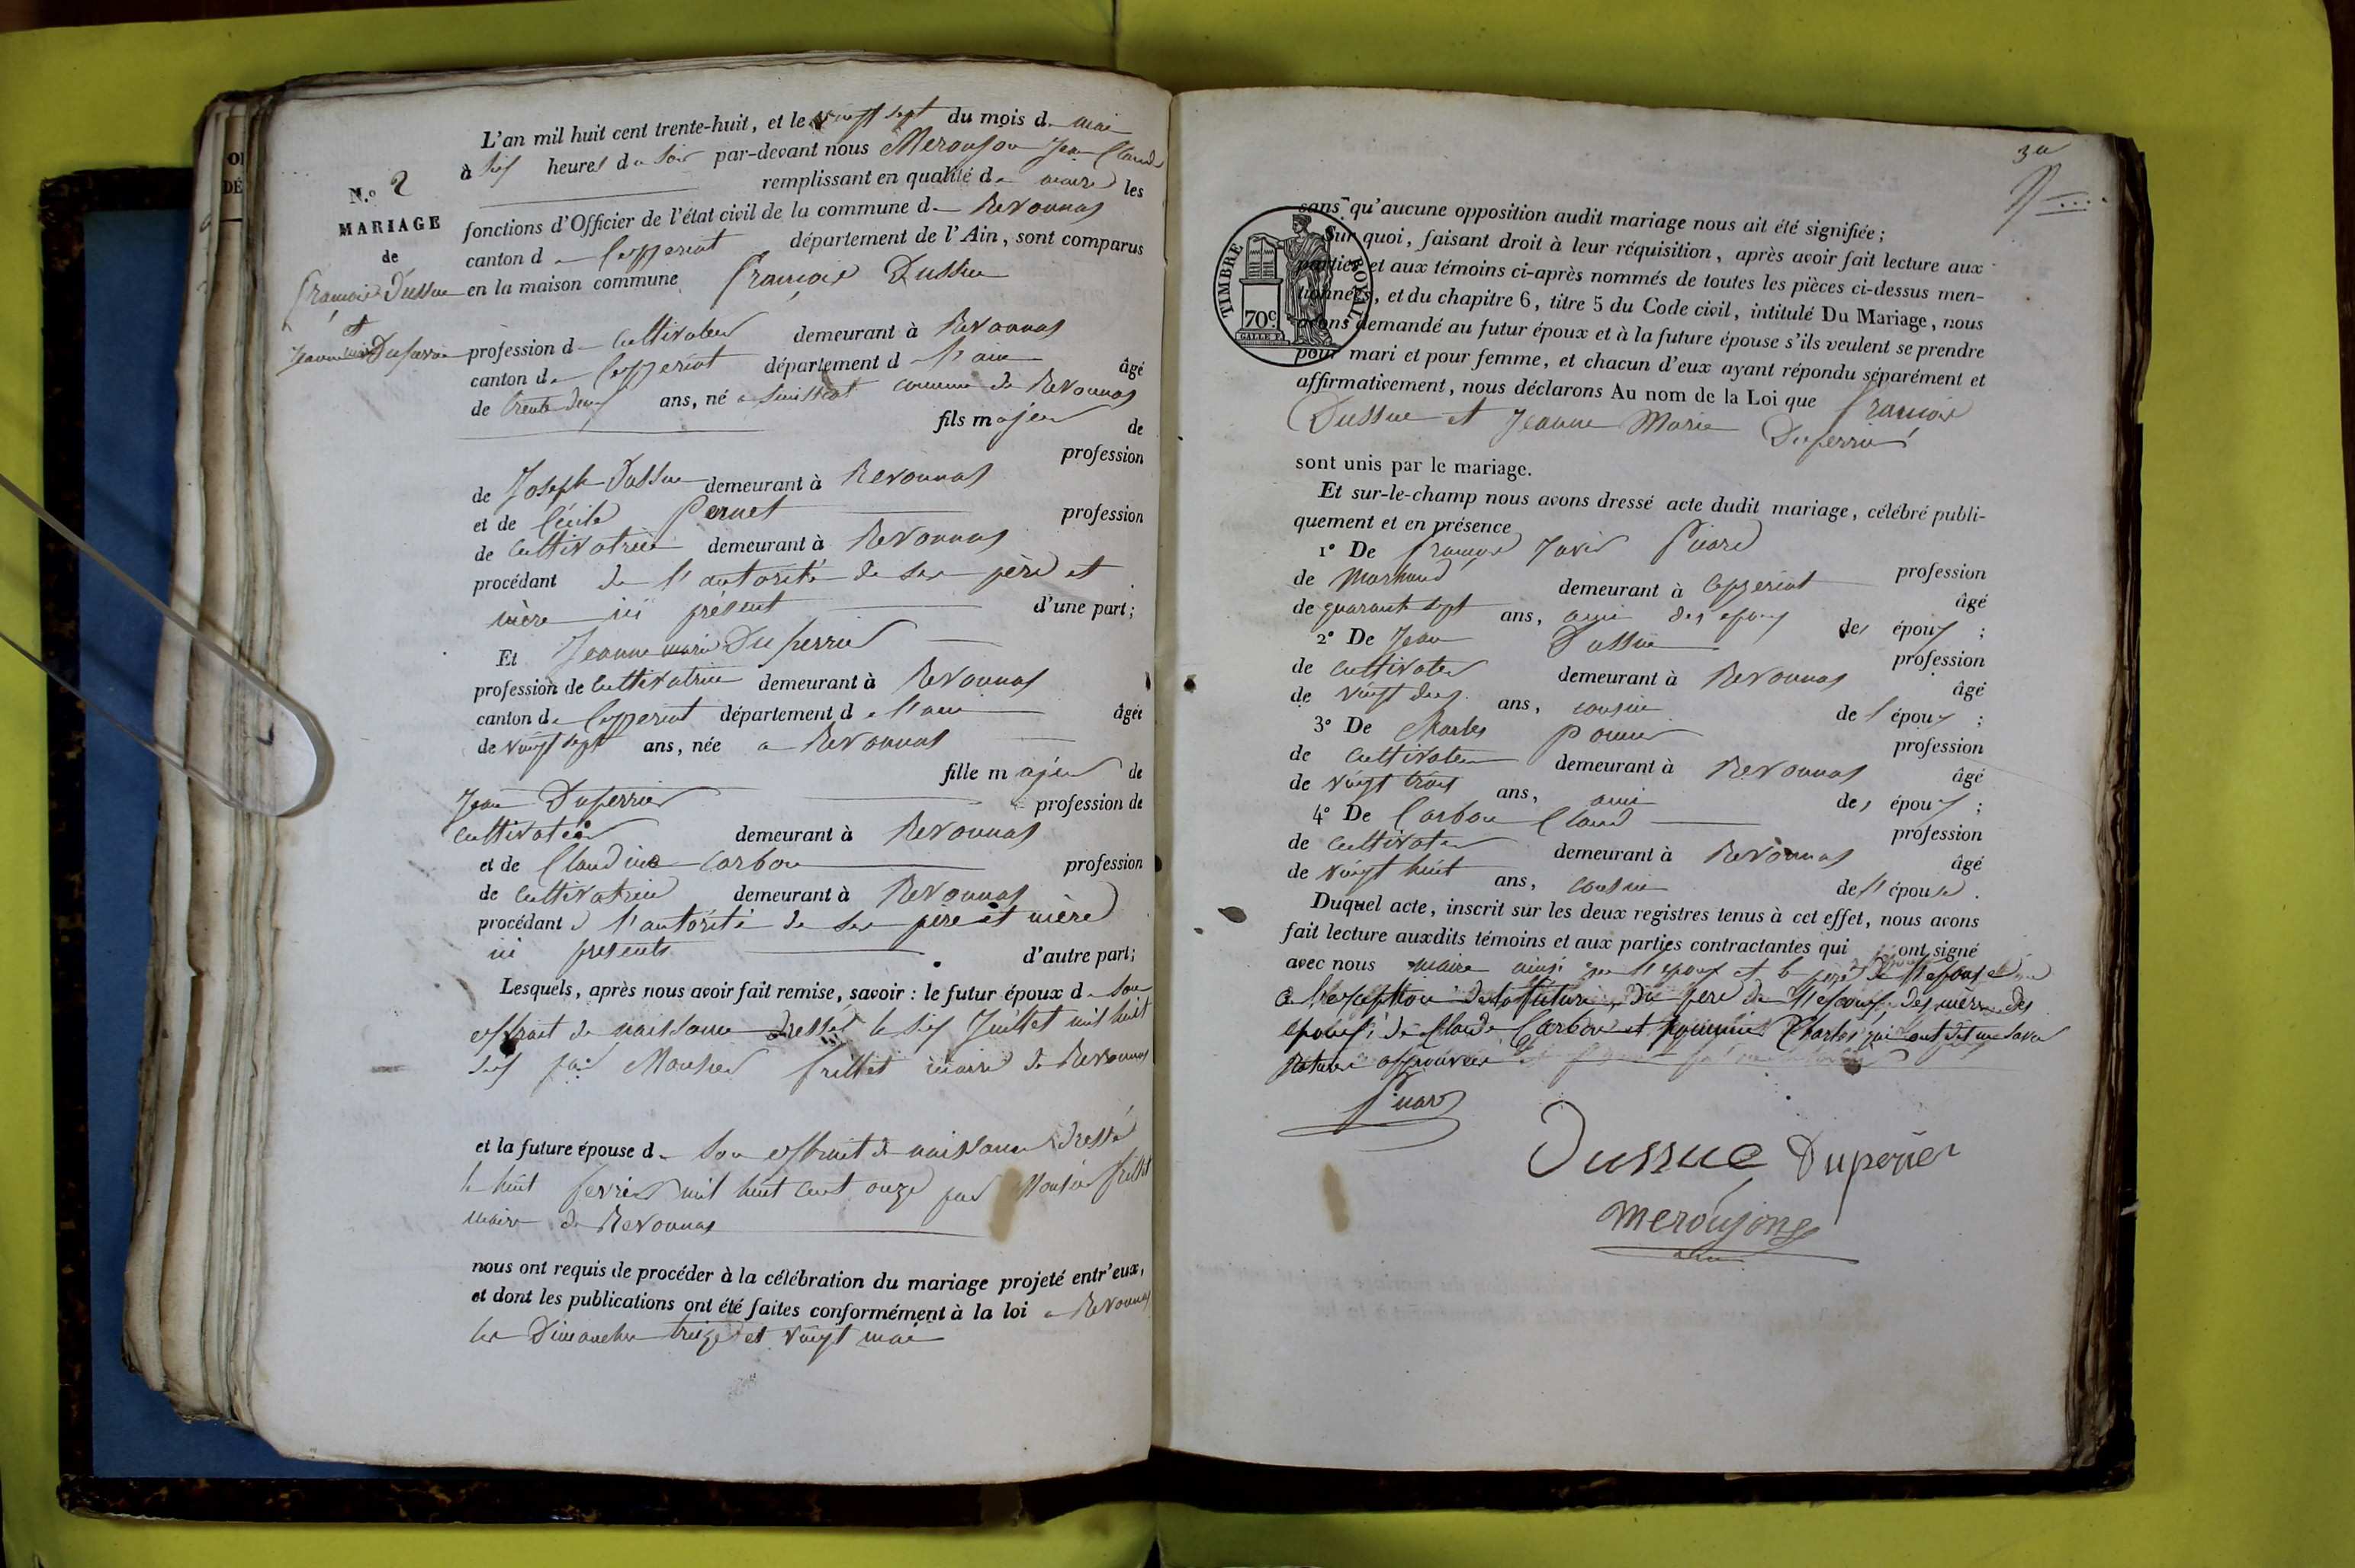 L'an mil huit cent trente-huit, et le vingt sept du mois de mai
à six heures du soir par-devant nous Meroujon Jean Claude
N.º 2
remplissant en qualité de maire les
MARIAGE
fonctions d'Officier de l'état civil de la commune de Revonnas
de
canton de Ceyzeriat département de l'Ain, sont comparus
François Dussue
en la maison commune François Dussue
et
Jeanne marie Duperrier
profession de Cultivateur demeurant à Revonnas
canton de Ceyzeriat département de l'ain âgé
de trente deux ans, né a commune de Revonnas
fils majeur de
profession
de Joseph Dussue demeurant à Revonnas
et de Cécile Pernet profession
de Cultivatrice demeurant à Revonnas
procédant de l'autorité de ses père et
mère ici présent d'une part;
Et Jeanne marie Duperrier
profession de Cultivatrice demeurant à Revonnas
canton de Ceyzeriat département de l'ain âgée
de vingt sept ans, née a Revonnas
fille majeur de
Jean Duperrier profession de
Cultivateur demeurant à Revonnas
et de Claudine Carbon profession
de Cultivatrice demeurant à Revonnas
procédant de l'autorité de ses père et mère
ici presents d'autre part;
Lesquels, après nous avoir fait remise, savoir: le futur époux de son
extrait de naissance dressé le six Juillet mil huit
six par Monsieur frillet maire de Revonnas
et la future épouse de son extrait de naissance dressé
le huit fevrier mil huit cent onze par Monsieur frillet
maire de Revonnas
nous ont requis de procéder à la célébration du mariage projeté entr'eux,
et dont les publications ont été faites conformément à la loi a Revonnas
les Dimanches treize et vingt mai
TIMBRE ROYAL
70c.
sans qu'aucune opposition audit mariage nous ait été signifiée;
Sur quoi, faisant droit à leur réquisition, après avoir fait lecture aux
parties et aux témoins ci-après nommés de toutes les pièces ci-dessus men-
tionnées, et du chapitre 6, titre 5 du Code civil, intitulé Du Mariage, nous
avons demandé au futur époux et à la future épouse s'ils veulent se prendre
pour mari et pour femme, et chacun d'eux ayant répondu séparément et
affirmativement, nous déclarons Au nom de la Loi que François
Dussue et Jeanne Marie Duperrier
sont unis par le mariage.
Et sur-le-champ nous avons dressé acte dudit mariage, célébré publi-
quement et en présence
1º De François Xavier profession
de Marchand demeurant à Ceyzeriat âgé
de quarante sept ans, ami des epoux des époux;
2º De Jean Dussue profession
de Cultivateur demeurant à Revonnas âgé
de vingt deux ans, cousin de l'époux;
3º De Charles profession
de Cultivateur demeurant à Revonnas âgé
de vingt trois ans, ami des époux;
4º De Carbon Claude profession
de Cultivateur demeurant à Revonnas âgé
de vingt huit ans, cousin de l'épouse.
Duquel acte, inscrit sur les deux registres tenus à cet effet, nous avons
fait lecture auxdits témoins et aux parties contractantes qui ont signé
avec nous maire ainsi que l'epoux et le père de l'epouse
a l'exception de la future, du pere de l'epoux, des mères des
epoux, de Claude Carbon et Charles qui ont dit ne savoir
Dussue Duperier
Meroujong